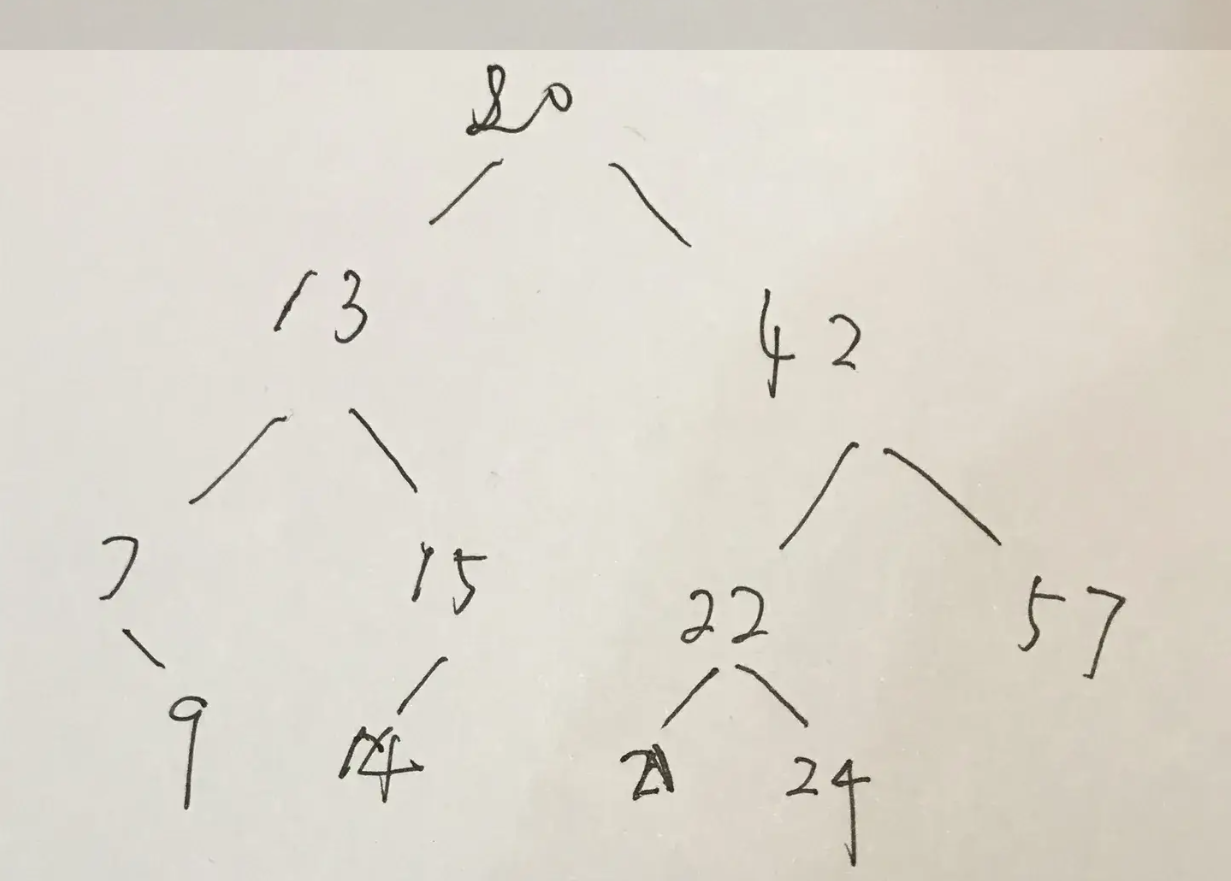 20
13
42
7
15
22
57
9
14
21
24